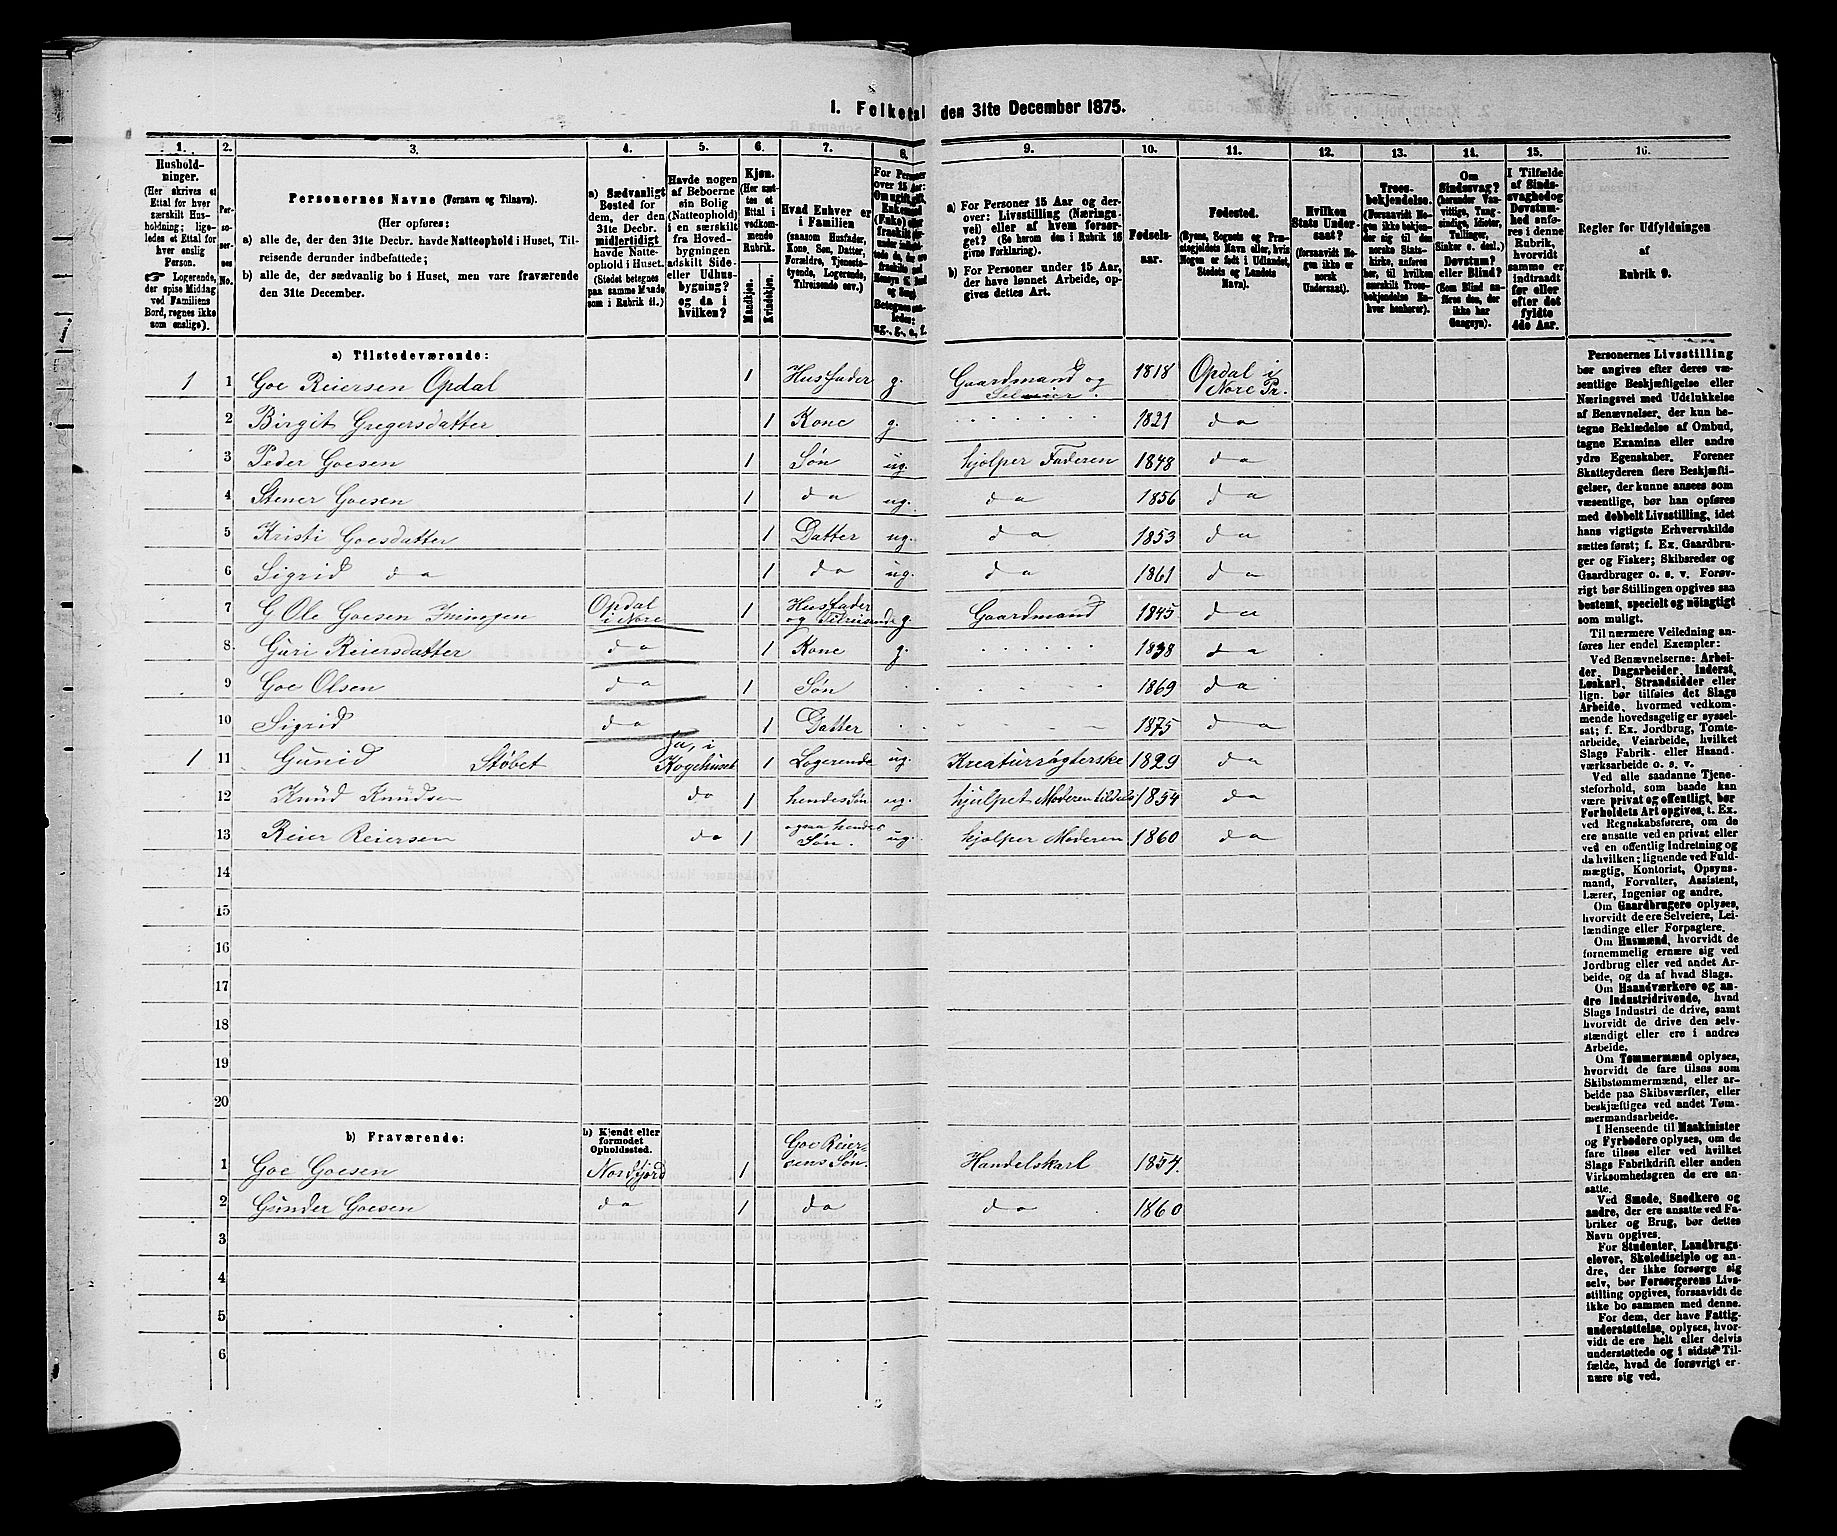 1. Folketal den 31te December 1875.
1. 2. 3. 4. 5. 6. 7. 8. 9. 10. 11. 12. 13. 14. 15. 16.
Husholdninger.
(Her skrives et
Ettal for hver
særskilt Husholdning;
ligeledes et Ettal for
hver enslig
Person.
Logerende,
der spise Middag
ved Familiens
Bord, regnes ikke
som enslige).
Personernes No.
Personernes Navne (Fornavn og Tilnavn).
(Her opføres:
a) alle de, der den 31te Decbr. havde Natteophold i Huset, Tilreisende derunder indbefattede;
b) alle de, der sædvanlig bo i Huset, men vare fraværende den 31te December.
a) Sædvanligt
Bosted for
dem, der den
31te Decbr.
midlertidigt
havde Natteophold i Huset.
(Stedet betegnes
paa samme Maade
som i Rubrik 11.)
Havde nogen
af Beboerne
sin Bolig
(Natteophold)
i en særskilt
fra Hovedbygningen
adskilt Side-
eller Udhusbygning?
og da i
hvilken?
Kjøn.
(Her sættes et
Ettal i
vedkommende
Rubrik.
Mandkjøn.
Kvindekjøn.
Hvad Enhver er
i Familien
(saasom Husfader,
Kone, Søn, Datter,
Forældre, Tjenestetyende, Logerende,
Tilreisende osv.)
For Personer
over 15 Aar:
Om ugift, gift,
Enkemand
(Enke) eller
fraskilt
ug., g., e., f.
a) For Personer 15 Aar og derover: Livsstilling (Næringsvei) eller af hvem forsørget? (Se herom den i Rubrik 16
givne Forklaring).
b) For Personer under 15 Aar,
der have lønnet Arbeide, opgives dettes Art.
Fødselsaar.
Fødested.
(Byens, Sognets og Præstegjeldets Navn eller, hvis
Nogen er født i Udlandet,
Stedets og Landets
Navn).
Hvilken
Stats Undersaat?
(forsaavidt Nogen ikke er
norsk
Undersaat).
Troesbekjendelse.
(Forsaavidt Nogen ikke bekjender sig til den
norske Statskirke, anføres
her, til hvilken
særskilt Troesbekjendelse Enhver henhører).
Om
Sindssvag?
(herunder Vanvittige, Tungsindige, Idioter,
Tullinger,
Sinker o. desl.)
Døvstum?
eller Blind?
(Som Blind anføres den, der
ikke har
Gangsyn).
I Tilfælde
af Sindssvaghed og
Døvstumhed anføres i denne
Rubrik,
hvorvidt
samme er
indtraadt
før eller
efter det
fyldte
4de Aar.
Regler for Udfyldningen
af
Rubrik 9.
a) Tilstedeværende:
1 1 Goe Reiersen Opdal 1 Husfader g. Gaardmand og Selveier. 1818 Opdal i Nore Pr.
2 Birgit Gregersdatter 1 Kone g. 1821 do
3 Peder Goesen 1 Søn ug. hjælper Faderen 1848 do
4 Stener Goesen 1 do ug. do 1856 do
5 Kristi Goesdatter 1 Datter ug. do 1853 do
6 Sigrid do 1 do ug. do 1861 do
7 Ole Goesen Opdal i Nore 1 Husfader og Tilreisende g. Gaardmand 1845 do
8 Guri Reiersdatter do 1 Kone g. 1838 do
9 Goe Olsen do 1 Søn 1869 do
10 Sigrid do 1 Datter 1875 do
1 11 Gunild Støbet Ja, i Kogehuset 1 Logerende ug. Kreaturrøgterske 1829 do
12 Knud Knudsen do 1 hendes Søn ug. hjulpet Moderen tildels 1854 do
13 Reier Reiersen do 1 ogsaa hendes Søn. ug. hjælper Moderen 1860 do
14
15
16
17
18
19
20
b) Fraværende: b) Kjendt eller formodet Opholdssted.
1 Goe Goesen Nordfjord 1 Goe Reiersens Søn. Handelskarl 1854.
2 Gunder Goesen do 1 do do 1860
3
4
5
6
Personernes Livsstilling
bør angives efter deres væsentlige Beskjæftigelse eller
Næringsvei med Udelukkelse
af Benævnelser, der kun betegne Beklædelse af Ombud,
tagne Examina eller andre
ydre Egenskaber. Forener
Skatteyderen flere Beskjæftigelser, der kunne ansees som
væsentlige, bør han opføres
med dobbelt Livsstilling, idet
hans vigtigste Erhvervskilde
sættes først; f. Ex. Gaardbruger og Fisker; Skibsreder og
Gaardbruger o. s. v. Forøvrigt bør Stillingen opgives saa
bestemt, specielt og nøiagtigt
som muligt.
Til nærmere Veiledning anføres her endel Exempler:
Ved Benævnelserne: Arbeider, Dagarbeider, Inderst,
Løskarl, Strandsidder eller
lign. bør tilføies det Slags
Arbeide, hvormed vedkommende hovedsagelig er sysselsat; f. Ex. Jordbrug, Tomtearbeide, Veiarbeide, hvilket
Slags Fabrik- eller Haandværksarbeide o. s. v.
Ved alle saadanne Tjenesteforhold, som baade kan
være privat og offentligt, bør
Forholdets Art opgives, t. Ex.
ved Regnskabsførere, om de
ere ansatte ved en privat eller
ved en offentlig Indretning og
da hvilken; lignende ved Fuldmægtig, Kontorist, Opsynsmand, Forvalter, Assistent,
Lærer, Ingeniør og andre.
Om Gaardbrugere oplyses,
hvorvidt de ere Selveiere, Leilændinge eller Forpagtere.
Om Husmænd, hvorvidt de
fornemmelig ernære sig ved
Jordbrug eller ved andet Arbeide, og da af hvad Slags.
Om Haandværkere og andre Industridrivende, hvad
Slags Industri de drive, samt
hvorvidt de drive den selvstændigt eller ere i andres
Arbeide.
Om Tømmermænd oplyses,
hvorvidt de fare tilsøs som
Skibstømmermænd, eller arbeide paa Skibsværfter, eller
beskjæftiges ved andet Tømmermandsarbeide.
I Henseende til Maskinister
og Fyrbødere oplyses, om de
fare tilsøs eller ved hvilket
Slags Fabrikdrift eller anden
Virksomhedsgren de ere ansatte.
Ved Smede, Snedkere og
andre, der ere ansatte ved Fabriker og Brug, bør dettes
Navn opgives.
For Studenter, Landbrugselever, Skoledisciple og andre, der ikke forsørge sig
selv, bør Forsørgerens Livsstilling opgives, forsaavidt de
ikke bo sammen med denne.
For dem, der have Fattigunderstøttelse, oplyses, hvorvidt de ere helt eller delvis
understøttede og i sidste Tilfælde, hvad de forøvrigt ernære sig ved.